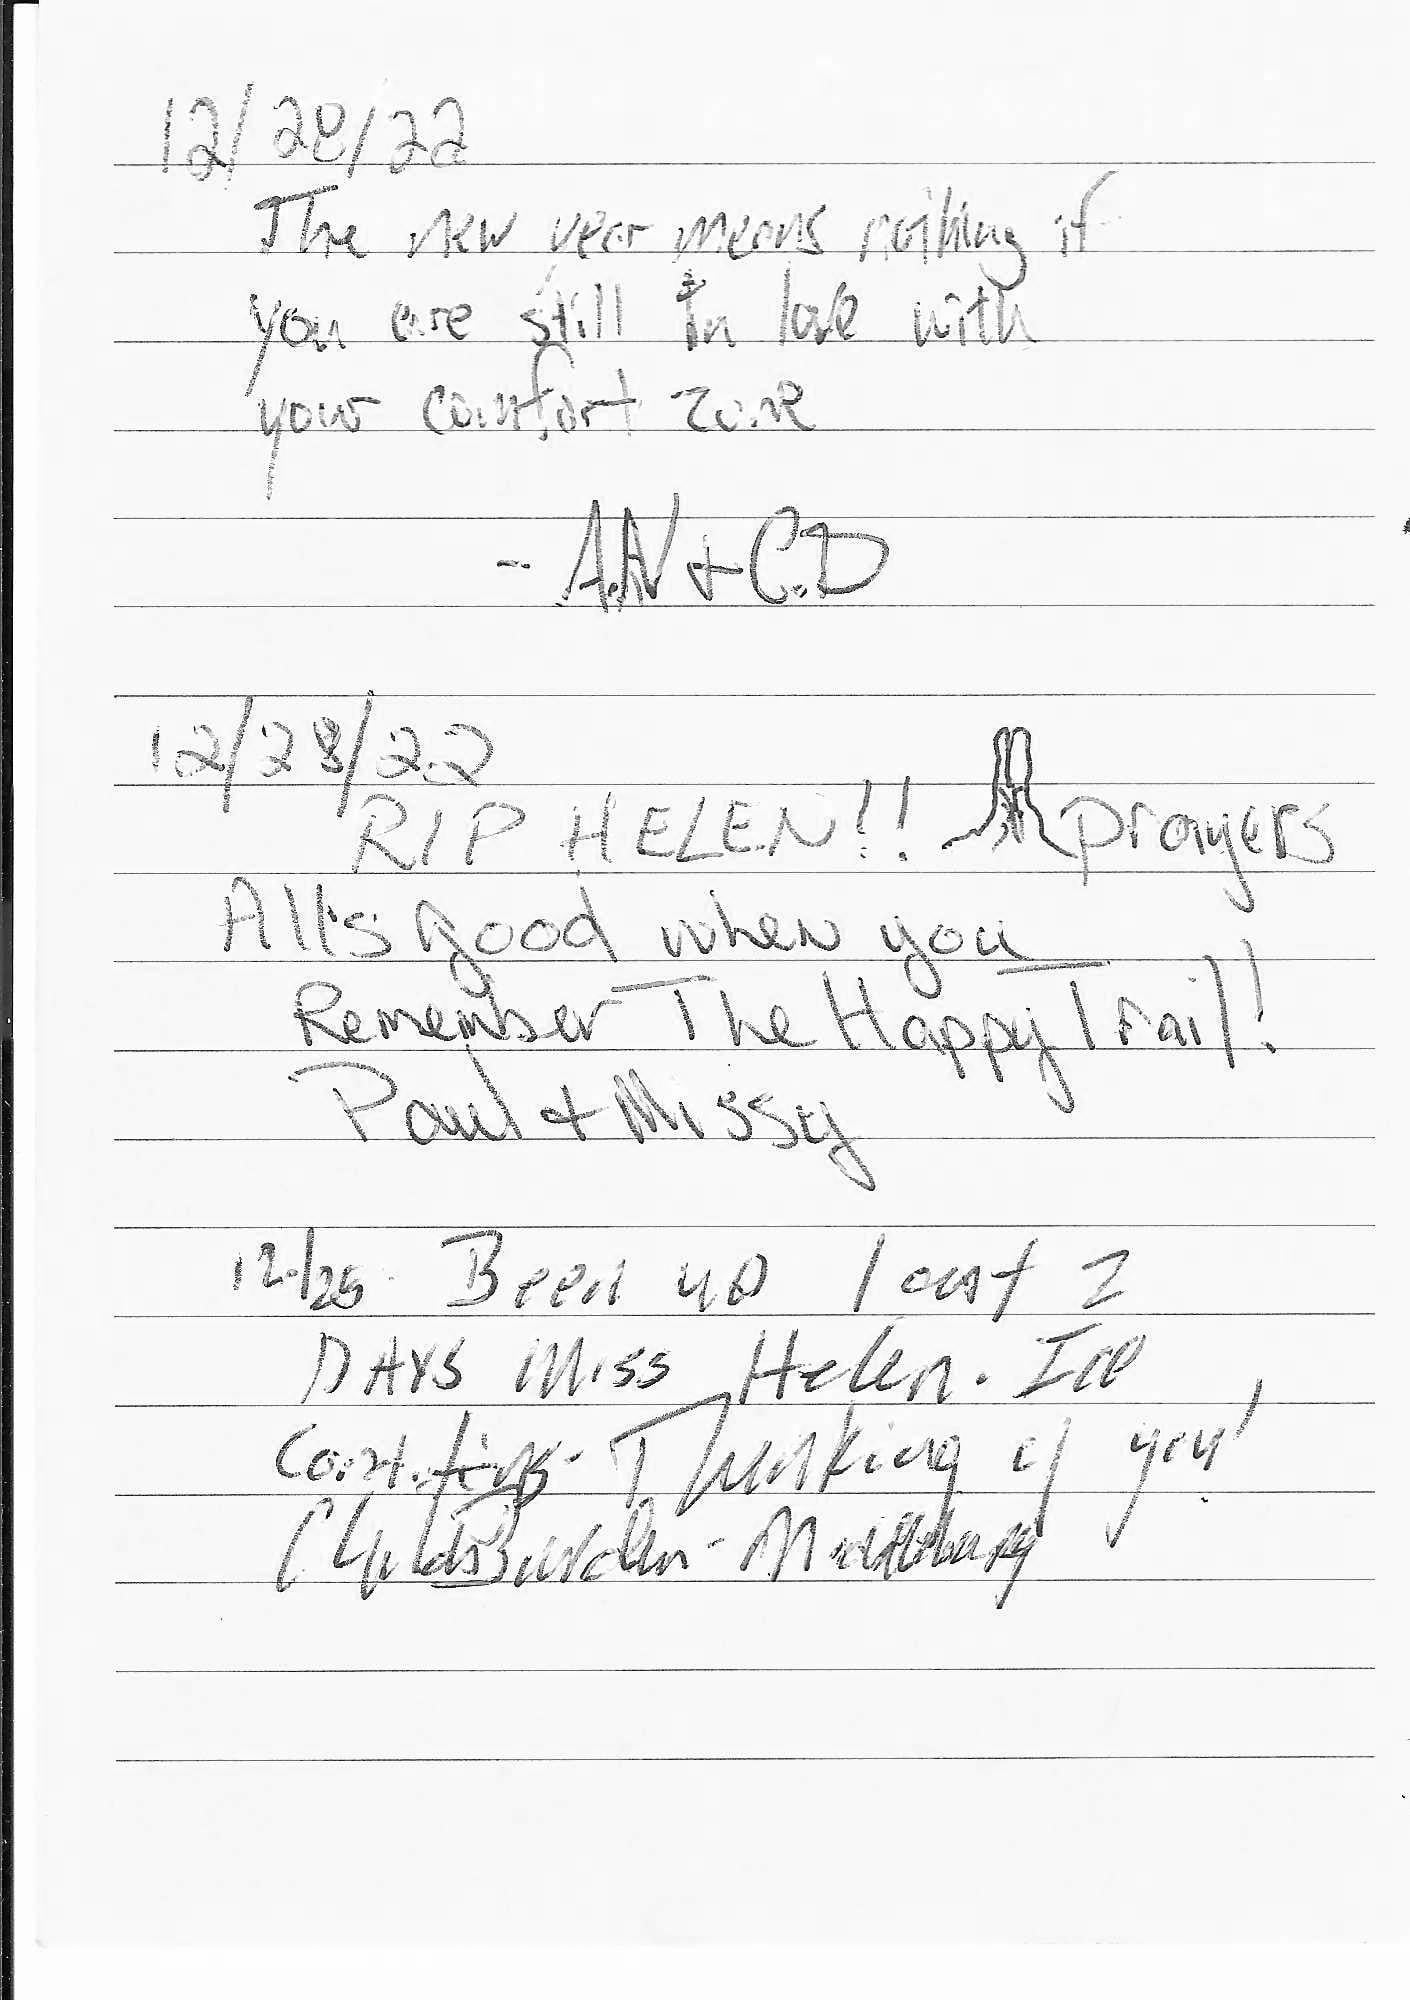 12/28/22
The new year means nothing if
you are still in love with
your comfort zone
- A.N + C.D
12/28/22
RIP HELEN!! prayers
All's good when you
Remember The Happy Trail!
Paul + Missy
12/28 Been up last 2
DAYS Miss Helen. Ice
Thinking of you!
Burden - Middleburg